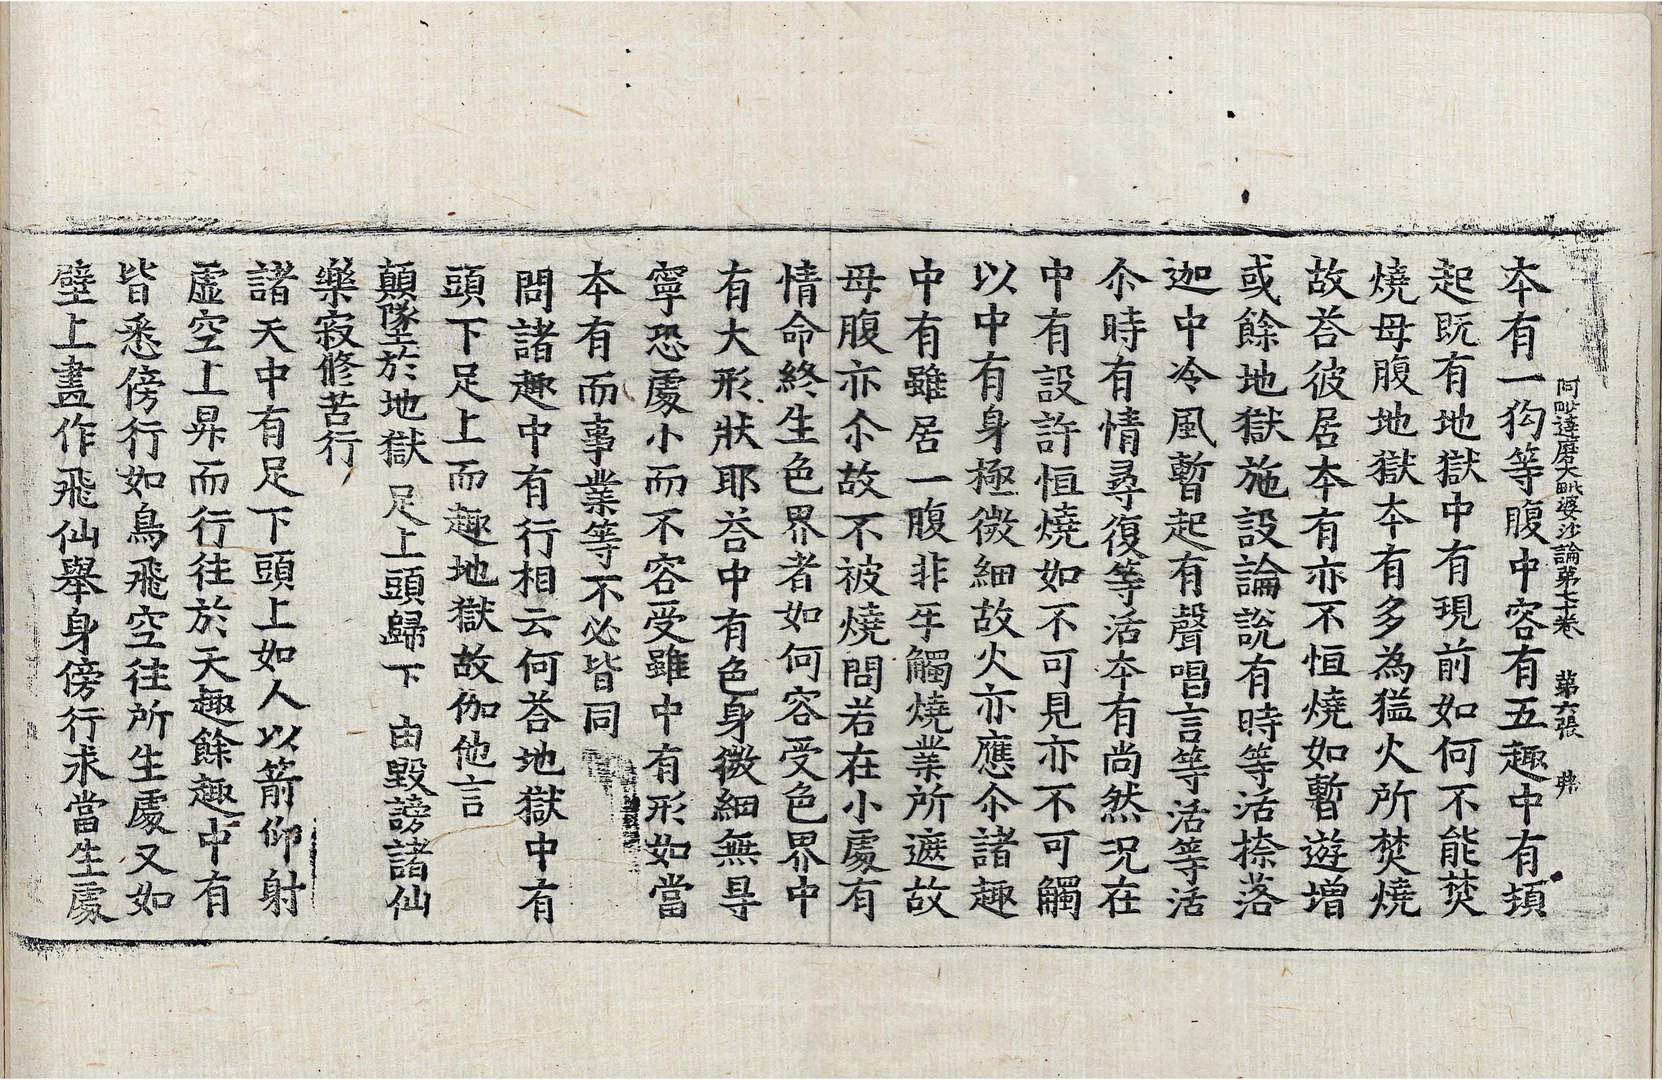 阿毗達磨大毗婆沙論第七十卷　第六張　弗
夲有一狗等腹中容有五趣中有頓
起旣有地獄中有現前如何不能焚
燒母腹地獄夲有多為猛火所焚燒
故荅彼居夲有亦不恒燒如暫遊增
或餘地獄施設論說有時等活捺落
迦中冷風暫起有聲唱言等活等活
尒時有情尋復等活夲有尚然况在
中有設許恒燒如不可見亦不可觸
以中有身極微細故火亦應尒諸趣
中有雖居一腹非互觸燒業所遮故
母腹亦尒故不被燒問若在小處有
情命終生色界者如何容受色界中
有大形狀耶荅中有色身微細無㝵
寧恐處小而不容受雖中有形如當
夲有而事業等不必皆同
問諸趣中有行相云何荅地獄中有
頭下足上而趣地獄故伽他言
顛墜於地獄　足上頭歸下　由毀謗諸仙
樂寂修苦行
諸天中有足下頭上如人以箭仰射
虛空上昇而行往於天趣餘趣中有
皆悉傍行如鳥飛空往所生處又如
壁上畫作飛仙舉身傍行求當生處